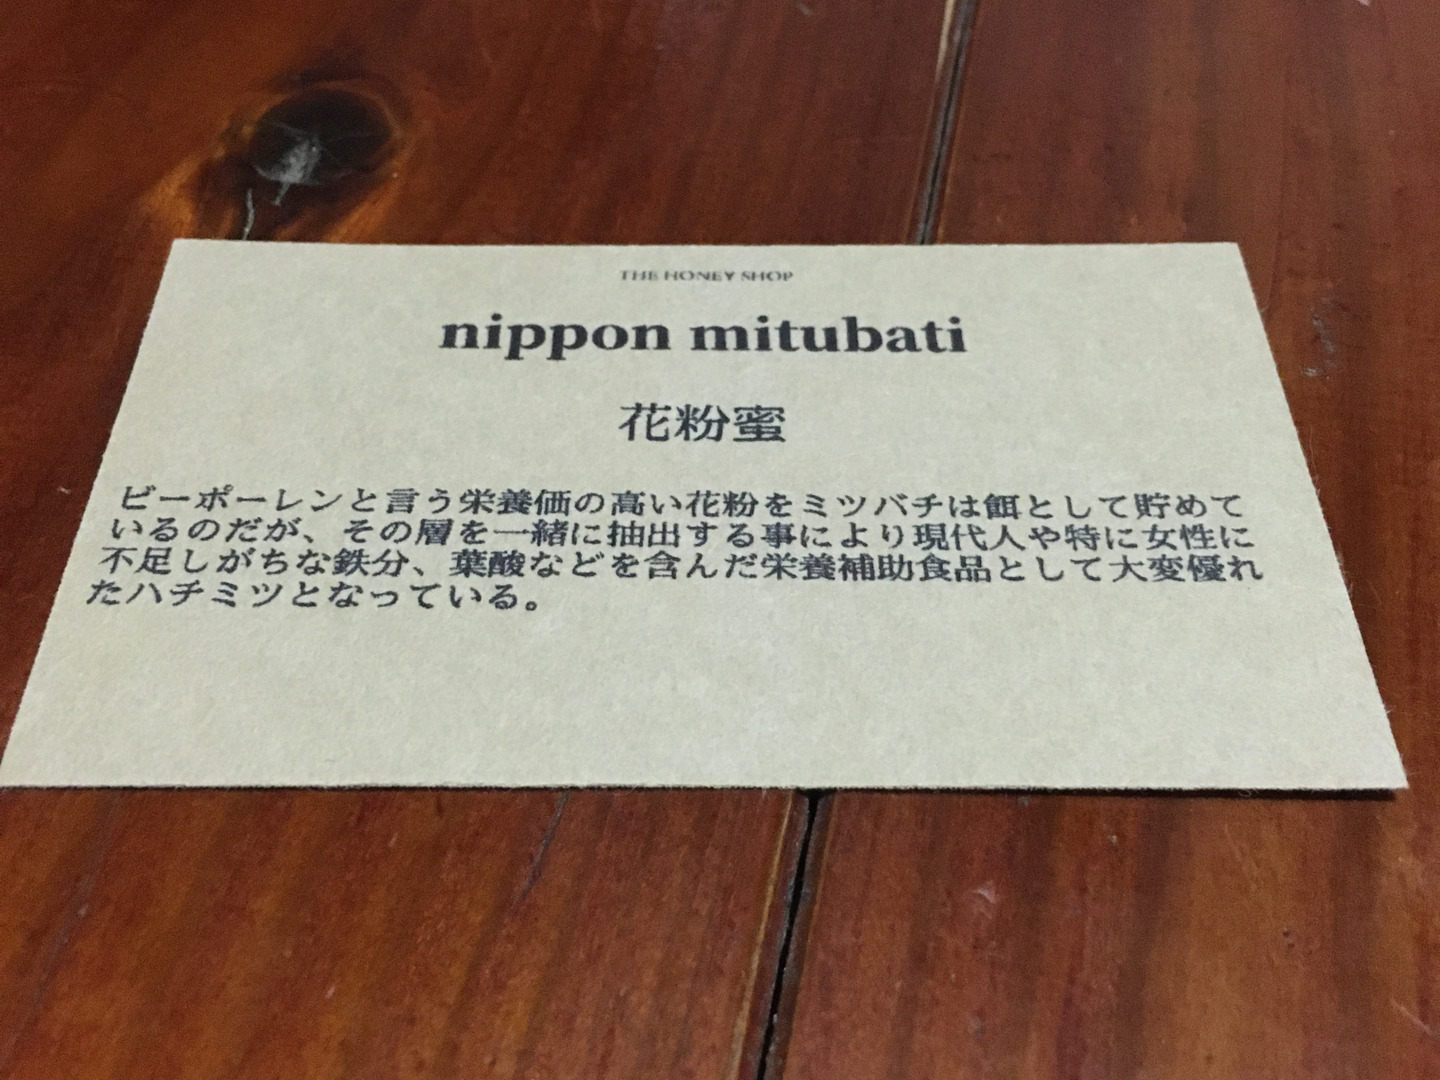 THE HONEY SHOP
nippon mitubati
花粉蜜
ビーポーレンと言う栄養価の高い花粉をミツバチは餌として貯めて
いるのだが、その層を一緒に抽出する事により現代人や特に女性に
不足しがちな鉄分、葉酸などを含んだ栄養補助食品として大変優れ
たハチミツとなっている。